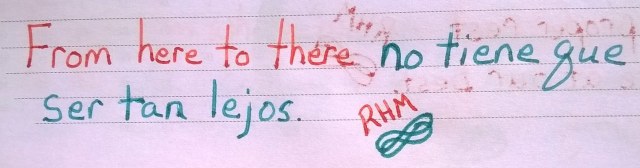 From here to there no tiene que
ser tan lejos.
RHM